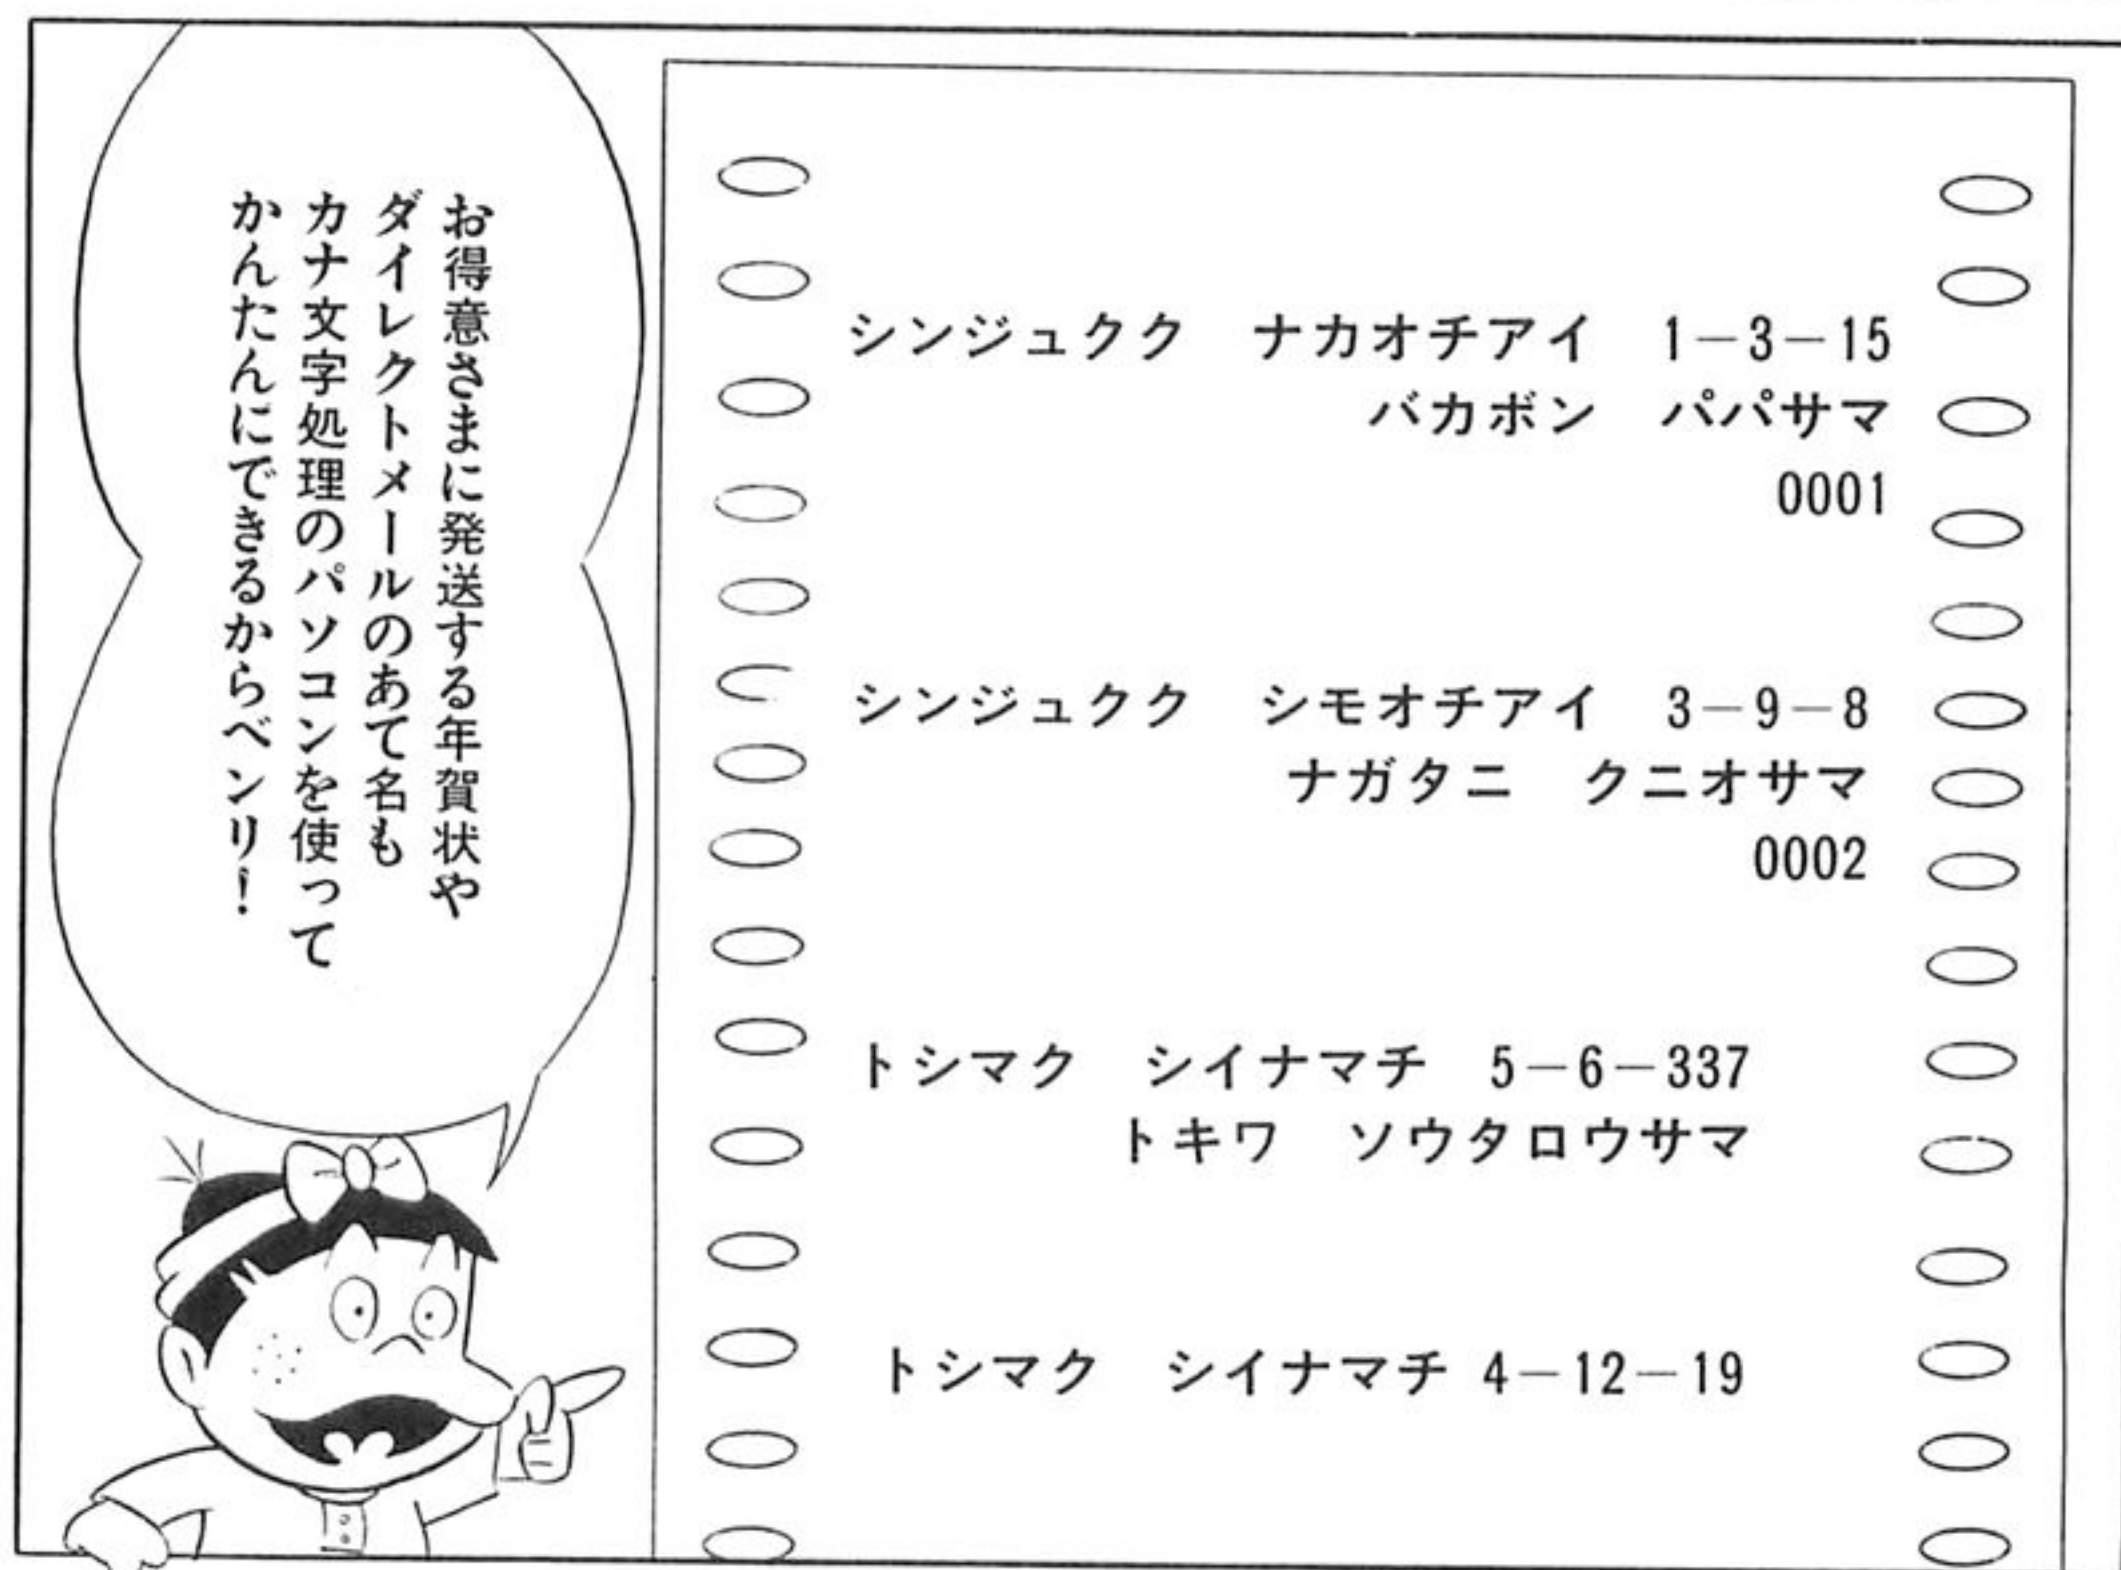 お得意さまに発送する年賀状や
ダイレクトメールのあて名も
カナ文字処理のパソコンを使って
かんたんにできるからベンリ！
シンジュクク　ナカオチアイ　1－3－15
バカボン　パパサマ
0001
シンジュクク　シモオチアイ　3－9－8
ナガタニ　クニオサマ
0002
トシマク　シイナマチ　5－6－337
トキワ　ソウタロウサマ
トシマク　シイナマチ 4－12－19